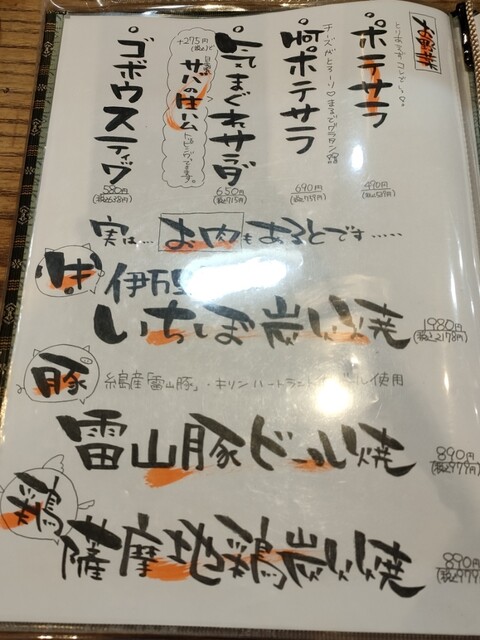 お野菜
とりあえずコレでしょ。
ポテサラ
490円
(税込539円)
チーズがとろーり♡まるでグラタン
ポテサラ
690円
(税込759円)
気まぐれサラダ
650円
(税込715円)
+275円
(税込)で
サバの生ハム
トッピングできます。
ゴボウスティック
580円
(税込638円)
実は… お肉もあるとです……
牛
伊万里
いちぼ炭火焼
1980円
(税込2178円)
豚
糸島産「雷山豚」・キリンハートランドビール使用
雷山豚ビール焼
890円
(税込979円)
鶏
薩摩地鶏炭火焼
890円
(税込979